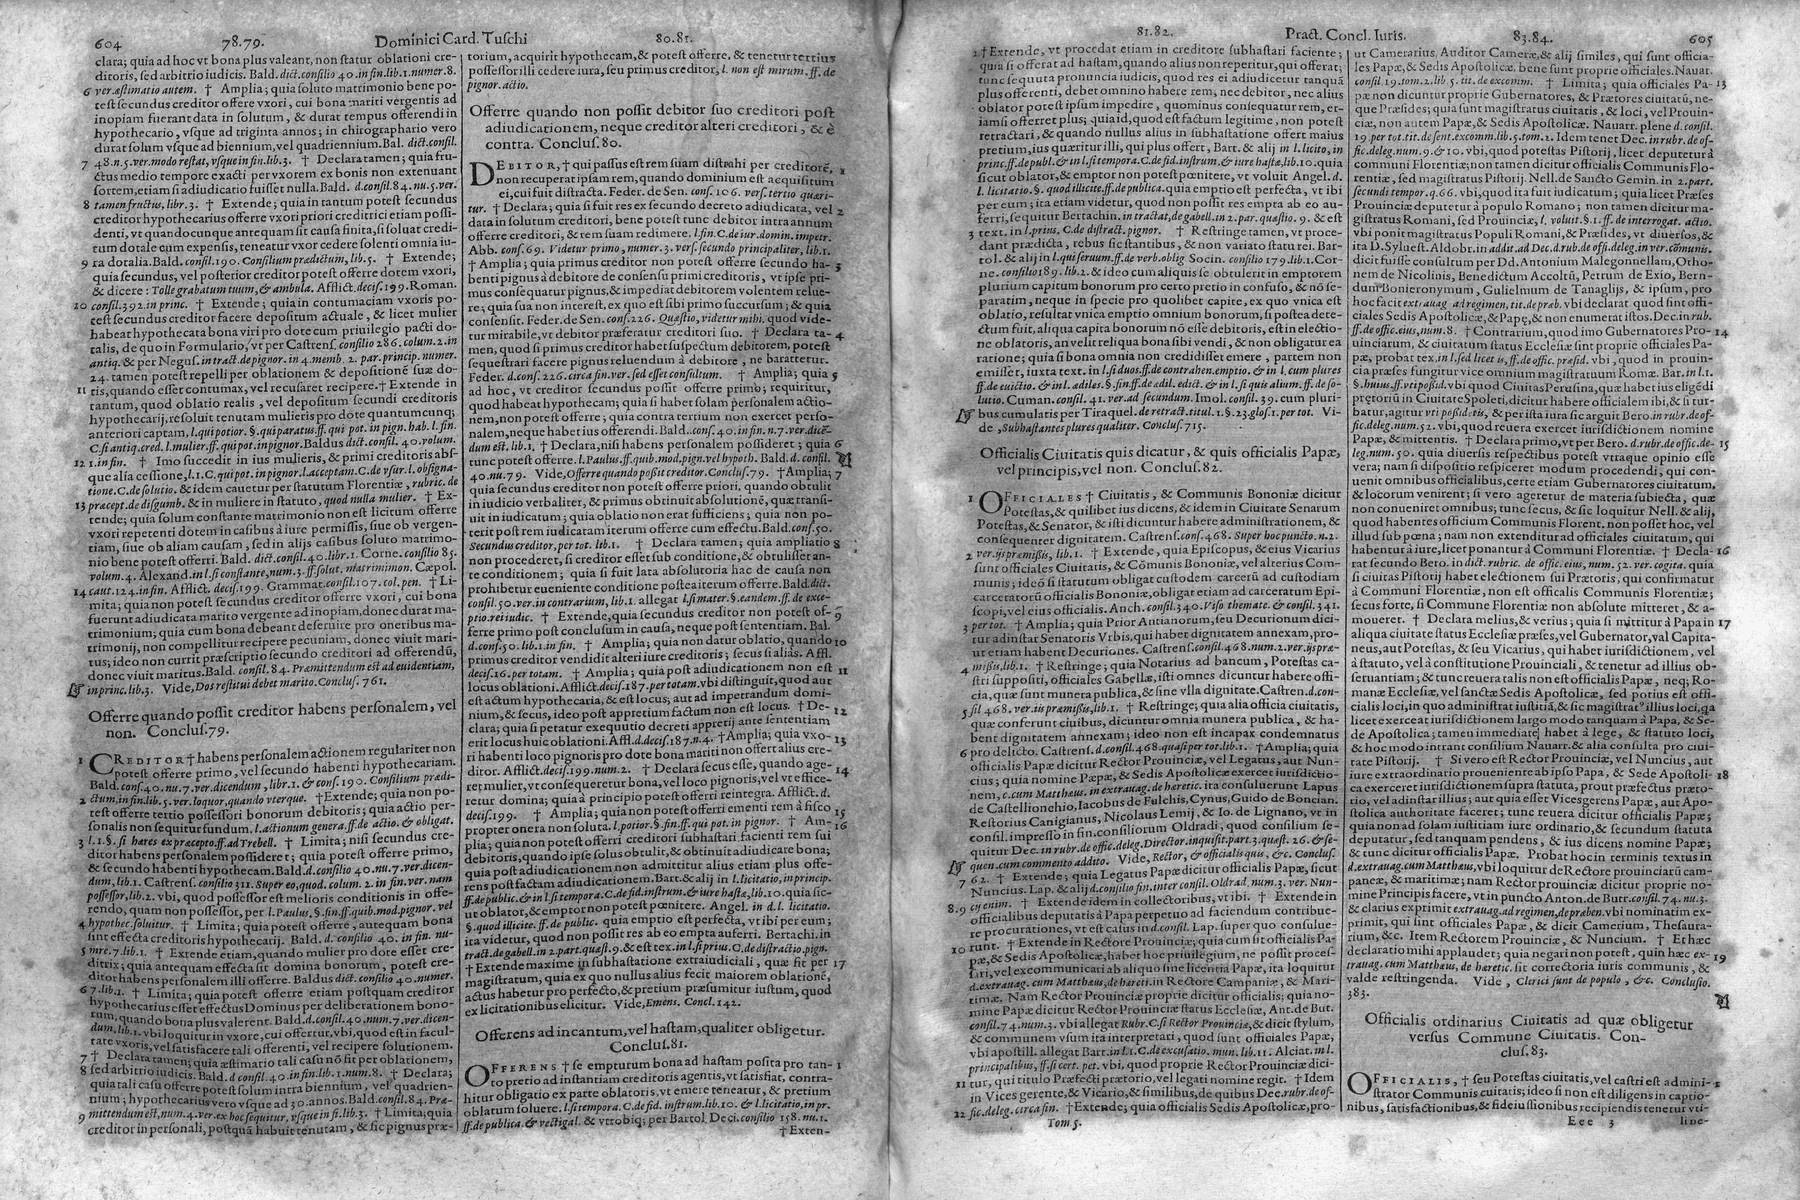 604 78.79. Dominici Card. Tuschi 80.81.
clara; quia ad hoc vt bona plus valeant, non statur oblationi cre-
ditoris, sed arbitrio iudicis. Bald. dict. consilio 40. in fin. lib. 1. numer. 8.
6 ver. æstimatio autem. † Amplia; quia soluto matrimonio bene po-
test secundus creditor offere vxori, cui bona mariti vergentis ad
inopiam fuerant data in solutum, & durat tempus offerendi in
hypothecario, vsque ad triginta annos; in chirographario vero
durat solum vsque ad biennium, vel quadriennium. Bal. dict. consil.
7 48. n. 5. ver. modo restat, vsque in fin. lib. 3. † Declara tamen; quia fru-
ctus medio tempore exacti per vxorem ex bonis non extenuant
sortem, etiam si adiudicatio fuisset nulla. Bald. d. consil. 84. nu. 5. ver.
8 tamen fructus, libr. 3. † Extende; quia in tantum potest secundus
creditor hypothecarius offerre vxori priori creditrici etiam possi-
denti, vt quandocunque antequam sit causa finita, si soluat credi-
tum dotale cum expensis, teneatur vxor cedere solenti omnia iu-
9 ra dotalia. Bald. consil. 190. Consilium prædictum, lib. 5. † Extende;
quia secundus, vel posterior creditor potest offerre dotem vxori,
& dicere: Tolle grabatum tuum, & ambula. Afflict. decis. 199. Roman.
10 consil. 392. in princ. † Extende; quia in contumaciam vxoris po-
test secundus creditor facere depositum actuale, & licet mulier
habeat hypothecata bona viri pro dote cum priuilegio pacti do-
talis, de quo in Formulario, vt per Castrens. consilio 286. colum. 2. in
antiq. & per Negus. in tract. de pignor. in 4. memb. 2. par. princip. numer.
24. tamen potest repelli per oblationem & depositionē suæ do-
11 tis, quando esset contumax, vel recusaret recipere. † Extende in
tantum, quod oblatio realis, vel depositum secundi creditoris
hypothecarij, resoluit tenutam mulieris pro dote quantumcunq;
anteriori captam, l. qui potior. §. qui paratus. ff. qui pot. in pign. hab. l. fin.
C. si antiq. cred. l. mulier. ff. qui pot. in pignor. Baldus dict. consil. 40. volum.
12 1. in fin. † Imo succedit in ius mulieris, & primi creditoris abs-
que alia cessione, l. 1. C. qui pot. in pignor. l. acceptam. C. de vsur. l. obsigna-
tione. C. de solutio. & idem cauetur per statutum Florentiæ, rubric. de
præcept. de disgumb. & in muliere in statuto, quod nulla mulier. † Ex-
13 tende; quia solum constante matrimonio non est licitum offerre
vxori repetenti dotem in casibus à iure permissis, siue ob vergen-
tiam, siue ob aliam causam, sed in alijs casibus soluto matrimo-
nio bene potest offerri. Bald. dict. consil. 40. libr. 1. Corne. consilio 85.
volum. 4. Alexand. in l. si constante, num. 3. ff. solut. matrimon. Cæpol.
14 caut. 124. in fin. Afflict. decis. 199. Grammat. consil. 107. col. pen. † Li-
mita; quia non potest secundus creditor offerre vxori, cui bona
fuerunt adiudicata marito vergente ad inopiam, donec durat ma-
trimonium; quia cum bona debeant deseruire pro oneribus ma-
trimonij, non compellitur recipere pecuniam, donec viuit mari-
tus; ideo non currit præscriptio secundo creditori ad offerendū,
donec viuit maritus. Bald. consil. 84. Præmittendum est ad euidentiam,
in princ. lib. 3. Vide, Dos restitui debet marito. Conclus. 761.
Offerre quando possit creditor habens personalem, vel
non. Conclus. 79.
1 CREDITOR † habens personalem actionem regulariter non
potest offerre primo, vel secundo habenti hypothecariam.
Bald. cons. 40. nu. 7. ver. dicendum, libr. 1. & cons. 190. Consilium prædi-
2 ctum, in fin. lib. 5. ver. loquor, quando vterque. † Extende; quia non po-
test offerre tertio possessori bonorum debitoris; quia actio per-
sonalis non sequitur fundum. l. actionum genera. ff. de actio. & obligat.
3 l. 1. §. si hæres ex præcepto. ff. ad Trebell. † Limita; nisi secundus cre-
ditor habens personalem possideret; quia potest offerre primo,
& secundo habenti hypothecam. Bald. d. consilio 40. nu. 7. ver. dicen-
dum, lib. 1. Castrens. consilio 311. Super eo, quod. colum. 2. in fin. ver. nam
possessor, lib. 2. vbi, quod possessor est melioris conditionis in offe-
rendo, quam non possessor, per l. Paulus, §. fin. ff. quib. mod. pignor. vel
4 hypothec. soluitur. † Limita; quia potest offerre, antequam bona
sint effecta creditoris hypothecarij. Bald. d. consilio 40. in fin. nu-
5 mre. 7. lib. 1. † Extende etiam, quando mulier pro dote esset cre-
ditrix; quia antequam effecta sit domina bonorum, potest cre-
ditor habens personalem illi offerre. Baldus dict. consilio 40. numer.
6 7. lib. 1. † Limita; quia potest offerre etiam postquam creditor
hypothecarius effectus Dominus per deliberationem bono-
rum, quando bona plus valerent. Bald. d. consil. 40. num. 7. ver. dicen-
dum, lib. 1. vbi loquitur in vxore, cui offertur, vbi, quod est in facul-
tate vxoris, vel satisfacere tali offerenti, vel recipere solutionem.
7 † Declara tamen; quia æstimatio tali casu nō fit per oblationem,
8 sed arbitrio iudicis. Bald. d. consil. 40. in fin. lib. 1. num. 8. † Declara;
quia tali casu offerre potest solum intra biennium, vel quadrien-
nium; hypothecarius vero vsque ad 30. annos. Bald. consil. 84. Præ-
mittendum est, num. 4. ver. ex hoc sequitur, vsque in fi. lib. 3. † Limita; quia
9 creditor in personali, postquā habuit tenutam, & sic pignus præ-
torium, acquirit hypothecam, & potest offerre, & tenetur tertius
possessor illi cedere iura, seu primus creditor, l. non est mirum. ff. de
pignor. actio.
Offerre quando non possit debitor suo creditori post
adiudicationem, neque creditor alteri creditori, & è
contra. Conclus. 80.
DEBITOR, † qui passus est rem suam distrahi per creditorē, 1
non recuperat ipsam rem, quando dominium est acquisitum
ei, cui fuit distracta. Feder. de Sen. cons. 106. vers. tertio quæri-
tur. † Declara; quia si fuit res ex secundo decreto adiudicata, vel 2
data in solutum creditori, bene potest tunc debitor intra annum
offerre creditori, & rem suam redimere. l. fin. C. de iur. domin. impetr.
Abb. cons. 69. Videtur primo, numer. 3. vers. secundo principaliter, lib. 1.
† Amplia; quia primus creditor non potest offerre secundo ha- 3
benti pignus à debitore de consensu primi creditoris, vt ipse pri-
mus consequatur pignus, & impediat debitorem volentem relue-
re; quia sua non interest, ex quo est sibi primo succursum; & quia
consensit. Feder. de Sen. cons. 226. Quæstio, videtur mihi. quod vide-
tur mirabile, vt debitor præferatur creditori suo. † Declara ta- 4
men, quod si primus creditor habet suspectum debitorem, potest
sequestrari facere pignus reluendum à debitore, ne barattetur.
Feder. d. cons. 226. circa fin. ver. sed esset consultum. † Amplia; quia 5
ad hoc, vt creditor secundus possit offerre primo; requiritur,
quod habeat hypothecam; quia si habet solam personalem actio-
nem, non potest offerre; quia contra tertium non exercet perso-
nalem, neque habet ius offerendi. Bald. cons. 40. in fin. n. 7. ver. dicē-
dum est. lib. 1. † Declara, nisi habens personalem possideret; quia 6
tunc potest offerre. l. Paulus. ff. quib. mod. pign. vel hypoth. Bald. d. consil.
40. nu. 79. Vide, Offerre quando possit creditor. Conclus. 79. † Amplia; 7
quia secundus creditor non potest offerre priori, quando obtulit
in iudicio verbaliter, & primus obtinuit absolutionē, quæ transi-
uit in iudicatum; quia oblatio non erat sufficiens; quia non po-
terit post rem iudicatam iterum offerre cum effectu. Bald. cons. 50.
Secundus creditor, per tot. lib. 1. † Declara tamen; quia ampliatio 8
non procederet, si creditor esset sub conditione, & obtulisset an-
te conditionem; quia si fuit lata absolutoria hac de causa non
prohibetur eueniente conditione postea iterum offerre. Bald. dict.
consil. 50. ver. in contrarium, lib. 1. allegat l. si mater. §. eandem. ff. de exce-
ptio. rei iudic. † Extende, quia secundus creditor non potest of- 9
ferre primo post conclusum in causa, neque post sententiam. Bal.
d. cons. 50. lib. 1. in fin. † Amplia; quia non datur oblatio, quando 10
primus creditor vendidit alteri iure creditoris; secus si aliàs. Affl.
decis. 16. per totam. † Amplia; quia post adiudicationem non est 11
locus oblationi. Afflict. decis. 187. per totam. vbi distinguit, quod aut
est actum hypothecaria, & est locus; aut ad impetrandum domi-
nium, & secus, ideo post appretium factum non est locus. † De- 12
clara; quia si petatur exequutio decreti appretij ante sententiam
erit locus huic oblationi. Affl. d. decis. 187. n. 4. † Amplia; quia vxo- 13
ri habenti loco pignoris pro dote bona mariti non offert alius cre-
ditor. Afflict. decis. 199. num. 2. † Declara secus esse, quando age- 14
ret mulier, vt consequeretur bona, vel loco pignoris, vel vt effice-
retur domina; quia à principio potest offerri reintegra. Afflict. d.
decis. 199. † Amplia; quia non potest offerri ementi rem à fisco 15
propter onera non soluta. l. potior. §. fin. ff. qui pot. in pignor. † Am- 16
plia; quia non potest creditori subhastari facienti rem sui
debitoris, quando ipse solus obtulit, & obtinuit adiudicare bona;
quia post adiudicationem non admittitur alius etiam plus offe-
rens post factam adiudicationem. Bart. & alij in l. licitatio, in princip.
ff. de public. & in l. si tempora. C. de fid. instrum. & iure hastæ, lib. 10. quia sic-
ut oblator, & emptor non potest pœnitere. Angel. in d. l. licitatio.
§. quod illicite. ff. de public. quia emptio est perfecta, vt ibi per eum;
ita videtur, quod non possit res ab eo empta auferri. Bertachi. in
tract. de gabell. in 2. part. quæst. 9. & est tex. in l. si prius. C. de distractio. pign.
† Extende maxime in subhastatione extraiudiciali, quæ fit per 17
magistratum, quia ex quo nullus alius fecit maiorem oblationē,
actus habetur pro perfecto, & pretium præsumitur iustum, quod
ex licitationibus elicitur. Vide, Emens. Concl. 142.
Offerens ad incantum, vel hastam, qualiter obligetur.
Conclus. 81.
OFFERENS † se empturum bona ad hastam posita pro tan- 1
to pretio ad instantiam creditoris agentis, vt satisfiat, contra-
hitur obligatio ex parte oblatoris, vt emere teneatur, & pretium
oblatum soluere. l. si tempora. C. de fid. instrum. lib. 10. & l. licitatio, in pr.
ff. de publica. & vectigal. & vtrobiq; per Bartol. Deci. consilio 158. nu. 1.
† Exten-
81.82. Pract. Concl. Iuris. 83.84. 605
2 † Extende, vt procedat etiam in creditore subhastari faciente;
quia si offerat ad hastam, quando alius non reperitur, qui offerat;
tunc sequuta pronuncia iudicis, quod res ei adiudicetur tanquā
plus offerenti, debet omnino habere rem, nec debitor, nec alius
oblator potest ipsum impedire, quominus consequatur rem, et-
iam si offerret plus; quia id, quod est factum legitime, non potest
retractari, & quando nullus alius in subhastatione offert maius
pretium, ius quæritur illi, qui plus offert, Bart. & alij in l. licito, in
princ. ff. de publ. & in l. si tempora. C. de fid. instrum. & iure hastæ, lib. 10. quia
sicut oblator, & emptor non potest pœnitere, vt voluit Angel. d.
l. licitatio. §. quod illicite. ff. de publica. quia emptio est perfecta, vt ibi
per eum; ita etiam videtur, quod non possit res empta ab eo au-
ferri, sequitur Bertachin. in tractat. de gabell. in 2. par. quæstio. 9. & est
3 text. in l. prius. C. de distract. pignor. † Restringe tamen, vt proce-
dant prædicta, rebus sic stantibus, & non variato statu rei. Bar-
tol. & alij in l. qui seruum. ff. de verb. oblig. Socin. consilio 179. lib. 1. Cor-
ne. consilio 189. lib. 2. & ideo cum aliquis se obtulerit in emptorem
plurium capitum bonorum pro certo pretio in confuso, & nō se-
paratim, neque in specie pro quolibet capite, ex quo vnica est
oblatio, resultat vnica emptio omnium bonorum, si postea dete-
ctum fuit, aliqua capita bonorum nō esse debitoris, est in electio-
ne oblatoris, an velit reliqua bona sibi vendi, & non obligatur ea
ratione; quia si bona omnia non credidisset emere, partem non
emisset, iuxta text. in l. si duos. ff. de contrahen. emptio. & in l. cum plures
ff. de euictio. & in l. ædiles. §. fin. ff. de ædil. edict. & in l. si quis alium. ff. de so-
lutio. Cuman. consil. 41. ver. ad secundum. Imol. consil. 39. cum pluri-
bus cumulatis per Tiraquel. de retract. titul. 1. §. 23. glos. 1. per tot. Vi-
de, Subhastantes plures qualiter. Conclus. 715.
Officialis Ciuitatis quis dicatur, & quis officialis Papæ,
vel principis, vel non. Conclus. 82.
1 OFFICIALES † Ciuitatis, & Communis Bononiæ dicitur
Potestas, & quilibet ius dicens, & idem in Ciuitate Senarum
Potestas, & Senator, & isti dicuntur habere administrationem, &
consequenter dignitatem. Castrens. cons. 468. Super hoc puncto. n. 2.
2 ver. ijs præmissis, lib. 1. † Extende, quia Episcopus, & eius Vicarius
sunt officiales Ciuitatis, & Cōmunis Bononiæ, vel alterius Com-
munis; ideo si statutum obligat custodem carcerū ad custodiam
carceratorū officialis Bononiæ, obligat etiam ad carceratum Epi-
scopi, vel eius officialis. Anch. consil. 340. Viso themate. & consil. 341.
3 per tot. † Amplia; quia Prior Antianorum, seu Decurionum dici-
tur ad instar Senatoris Vrbis, qui habet dignitatem annexam, pro-
ut etiam habent Decuriones. Castrens. consil. 468. num. 2. ver. ijs præ-
4 missis, lib. 1. † Restringe; quia Notarius ad bancum, Potestas ca-
stri suppositi, officiales Gabellæ, isti omnes dicuntur habere offi-
cia, quæ sunt munera publica, & sine vlla dignitate. Castren. d. con-
5 sil 468. ver. iis præmissis, lib. 1. † Restringe; quia alia officia ciuitatis,
quæ conferunt ciuibus, dicuntur omnia munera publica, & ha-
bent dignitatem annexam; ideo non est incapax condemnatus
6 pro delicto. Castrens. d. consil. 468. quasi per tot. lib. 1. † Amplia; quia
officialis Papæ dicitur Rector Prouinciæ, vel Legatus, aut Nun-
cius; quia nomine Papæ, & Sedis Apostolicæ exercet iurisdictio-
nem, c. cum Matthæus. in extrauag. de hæretic. ita consuluerunt Lapus
de Castellionchio, Iacobus de Fulchis, Cynus, Guido de Boncian.
Restorius Canigianus, Nicolaus Lemij, & Io. de Lignano, vt in
consil. impresso in fin. consiliorum Oldradi, quod consilium se-
quitur Dec. in rubr. de offic. deleg. Director. inquisit. part. 3. quæst. 26. & se-
quen. cum commento addito. Vide, Rector, & officialis quis, &c. Conclus.
7 62. † Extende; quia Legatus Papæ dicitur officialis Papæ, sicut
Nuncius. Lap. & alij d. consilio fin. inter consil. Oldrad. num. 3. ver. Nun-
8.9 cij enim. † Extende idem in collectoribus, vt ibi. † Extende in
officialibus deputatis à Papa perpetuo ad faciendum contribue-
re procurationes, vt est casus in d. consil. Lap. super quo consulue-
10 runt. † Extende in Rectore Prouinciæ; quia cum sit officialis Pa-
pæ, & Sedis Apostolicæ, habet hoc priuilegium, ne possit proces-
sari, vel excommunicari ab aliquo sine licentia Papæ, ita loquitur
d. extrauag. cum Matthæus, de hæreti. in Rectore Campaniæ, & Mari-
timæ. Nam Rector Prouinciæ proprie dicitur officialis; quia no-
mine Papæ dicitur Rector Prouinciæ status Ecclesiæ, Ant. de But.
consil. 74. num. 3. vbi allegat Rubr. C. si Rector Prouinciæ, & dicit stylum,
& communem vsum ita interpretari, quod sunt officiales Papæ,
vbi apostill. allegat Barr. in l. 1. C. de excusatio. mun. lib. 11. Alciat. in l.
principalibus, ff. si cert. pet. vbi, quod proprie Rector Prouinciæ dici-
11 tur, qui titulo Præfecti prætorio, vel legati nomine regit. † Idem
in Vices gerente, & Vicario, & similibus, de quibus Dec. rubr. de of-
12 fic. deleg. circa fin. † Extende; quia officialis Sedis Apostolicæ, pro-
Tom 5.
ut Camerarius, Auditor Cameræ, & alij similes, qui sunt officia-
les Papæ, & Sedis Apostolicæ, bene sunt proprie officiales. Nauar.
consil. 19. tom. 2. lib. 5. tit. de excomm. † Limita; quia officiales Pa- 13
pæ non dicuntur proprie Gubernatores, & Prætores ciuitatū, ne-
que Præsides; quia sunt magistratus ciuitatis, & loci, vel Prouin-
ciæ, non autem Papæ, & Sedis Apostolicæ. Nauarr. plene d. consil.
19 per tot. tit. de sent. excomm. lib. 5. tom. 2. Idem tenet Dec. in rubr. de of-
fic. deleg. num. 9. & 10. vbi, quod potestas Pistorij, licet deputetur à
communi Florentiæ; non tamen dicitur officialis Communis Flo-
rentiæ, sed magistratus Pistorij. Nell. de Sancto Gemin. in 2. part.
secundi tempor. q. 66. vbi, quod ita fuit iudicatum; quia licet Præses
Prouinciæ deputetur à populo Romano; non tamen dicitur ma-
gistratus Romani, sed Prouinciæ, l. voluit. §. 1. ff. de interrogat. actio.
vbi ponit magistratus Populi Romani, & Præsides, vt diuersos, &
ita D. Syluest. Aldobr. in addit. ad Dec. d. rub. de offi. deleg. in ver. cōmunis.
dicit fuisse consultum per DD. Antonium Malegonnellam, Orho-
nem de Nicolinis, Benedictum Accoltū, Petrum de Exio, Bern-
dum Bonieronymum, Gulielmum de Tanaglijs, & ipsum, pro
hoc facit extrauag. ad regimen, tit. de præb. vbi declarat quod sunt offi-
ciales Sedis Apostolicæ, & Papę, & non enumerat istos. Dec. in rub.
ff. de offic. eius, num. 8. † Contrarium, quod imo Gubernatores Pro- 14
uinciarum, & ciuitatum status Ecclesiæ sint proprie officiales Pa-
pæ, probat tex. in l. sed licet is, ff. de offic. præsid. vbi, quod in prouin-
cia præses fungitur vice omnium magistratuum Romæ. Bar. in l. 1.
§. huius. ff. vti possid. vbi quod Ciuitas Perusina, quæ habet ius eligēdi
pretorū in Ciuitate Spoleti, dicitur habere officialem ibi, & si tur-
batur, agitur vti possidetis, & per ista iura sic arguit Bero. in rubr. de of-
fic. deleg. num. 52. vbi, quod reuera exercet iurisdictionem nomine
Papæ, & mittentis. † Declara primo, vt per Bero. d. rubr. de offic. de- 15
leg. num. 50. quia diuersis respectibus potest vtraque opinio esse
vera; nam si dispositio respiceret modum procedendi, qui con-
uenit omnibus officialibus, certe etiam Gubernatores ciuitatum,
& locorum venirent; si vero ageretur de materia subiecta, quæ
non conueniret omnibus; tunc secus, & sic loquitur Nell. & alij,
quod habentes officium Communis Florent. non posset hoc, vel
illud sub pœna; nam non extenditur ad officiales ciuitatum, qui
habentur à iure, licet ponantur à Communi Florentiæ. † Decla- 16
rat secundo Bero. in dict. rubric. de offic. eius, num. 52. ver. cogita. quia
si ciuitas Pistorij habet electionem sui Prætoris, qui confirmatur
à Communi Florentiæ, non est officalis Communis Florentiæ;
secus forte, si Commune Florentiæ non absolute mitteret, & a-
moueret. † Declara melius, & verius; quia si mittitur à Papa in 17
aliqua ciuitate status Ecclesiæ præses, vel Gubernator, val Capita-
neus, aut Potestas, & seu Vicarius, qui habet iurisdictionem, vel
à statuto, vel à constitutione Prouinciali, & tenetur ad illius ob-
seruantiam; & tunc reuera talis non est officialis Papæ, neq; Ro-
manæ Ecclesiæ, vel sanctæ Sedis Apostolicæ, sed potius est offi-
cialis loci, in quo administrat iustitiā, & sic magistrat' illius loci, qa
licet exerceat iurisdictionem largo modo tanquam à Papa, & Se-
de Apostolica; tamen immediate habet à lege, & statuto loci,
& hoc modo intrant consilium Nauarr. & alia consulta pro ciui-
tate Pistorij. † Si vero est Rector Prouinciæ, vel Nuncius, aut
iure extraordinario proueniente ab ipso Papa, & Sede Apostoli- 18
ca exerceret iurisdictionem supra statuta, prout præfectus præto-
rio, vel ad instar illius; aut quia esset Vicesgerens Papæ, aut Apo-
stolica authoritate faceret; tunc reuera dicitur officialis Papæ;
quia non ad solam iustitiam iure ordinario, & secundum statuta
deputatur, sed tanquam pendens, & ius dicens nomine Papæ;
& tunc dicitur officialis Papæ. Probat hoc in terminis textus in
d. extrauag. cum Matthæus, vbi loquitur de Rectore prouinciarū cam-
paneæ, & maritimæ; nam Rector prouinciæ dicitur proprie no-
mine Principis facere, vt in puncto Anton. de Butr. consil. 74. nu. 3.
& clarius exprimit extrauag. ad regimen, de præben. vbi nominatim ex-
primit, qui sint officiales Papæ, & dicit Camerium, Thesaura-
rium, &c. Item Rectorem Prouinciæ, & Nuncium. † Et hæc
declaratio mihi applaudet; quia negari non potest, quin hæc ex- 19
trauag. cum Matthæus, de hæretic. sit correctoria iuris communis, &
valde restringenda. Vide, Clerici sunt de populo, &c. Conclusio.
383.
Officialis ordinarius Ciuitatis ad quæ obligetur
versus Commune Ciuitatis. Con-
clus. 83.
OFFICIALIS, † seu Potestas ciuitatis, vel castri est admini- 1
strator Communis cuitatis; ideo si non est diligens in captio-
nibus, satisfactionibus, & fideiussionibus recipiendis tenetur vti-
Eee 3 line-